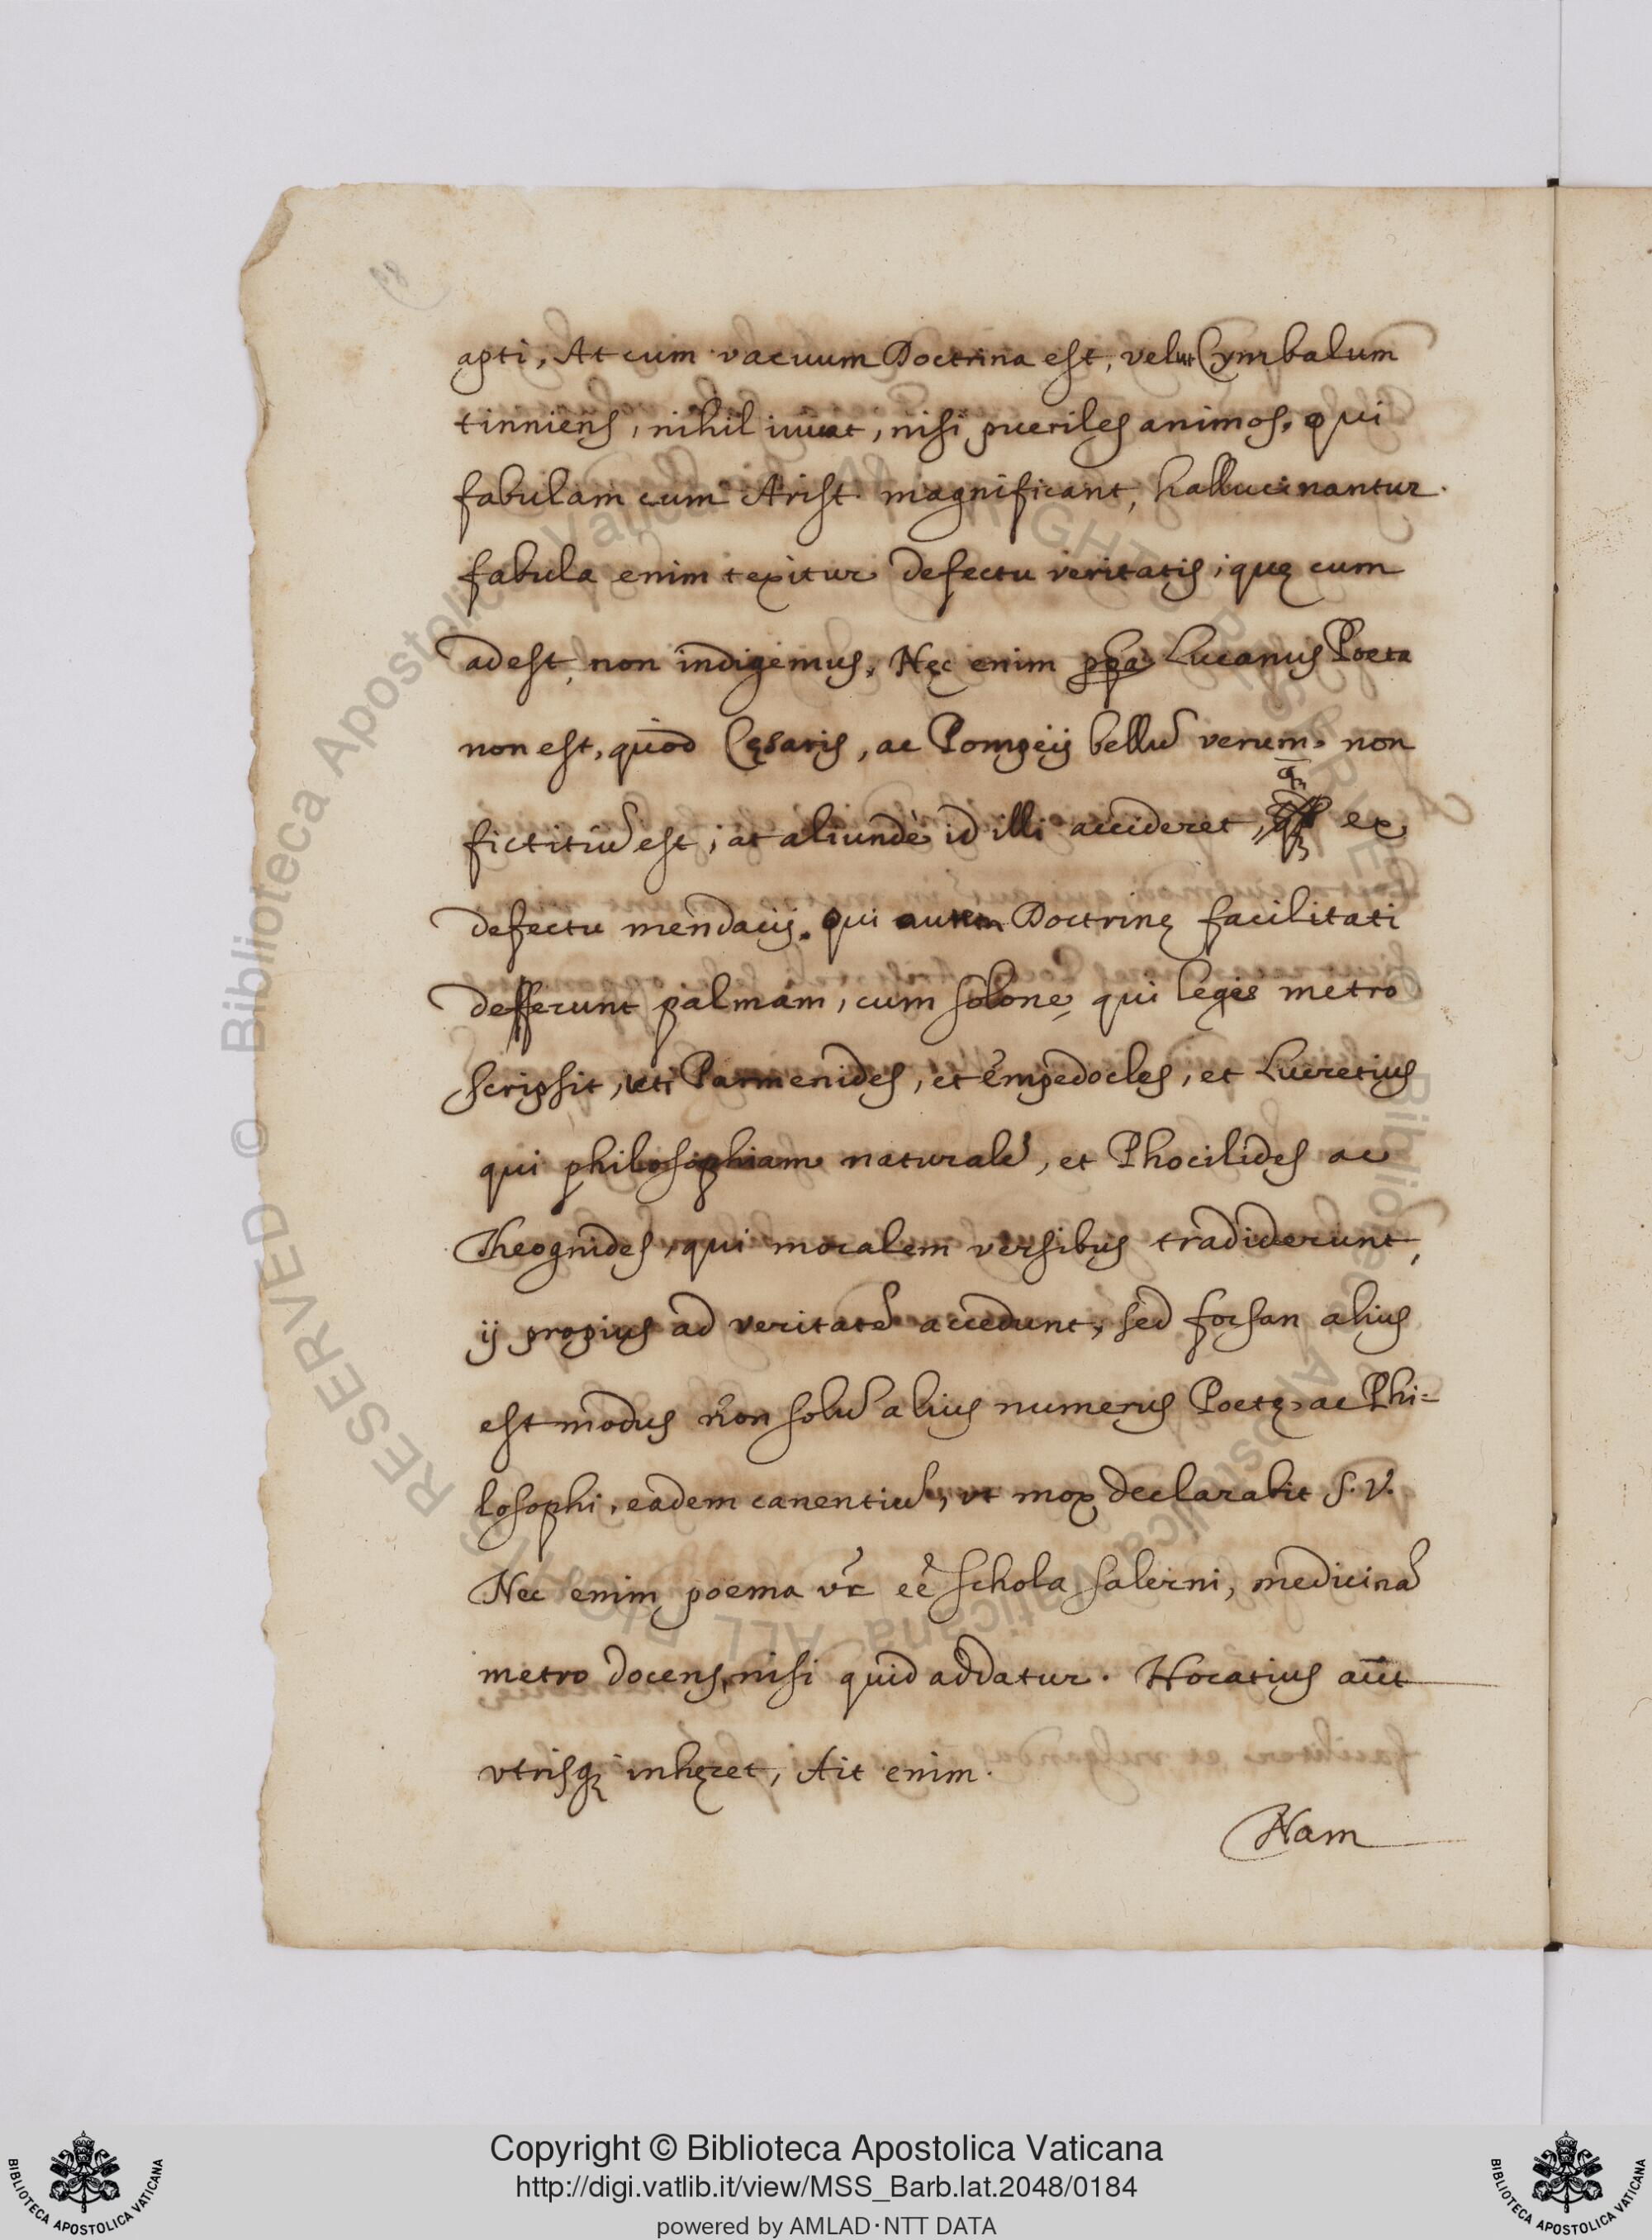 apti, At cum vacuum Doctrina est, velut Cymbalum
tinniens, nihil iuuat, nisi pueriles animos. qui
fabulam cum Arist. magnificant, hallucinantur.
fabula enim texitur defectu veritatis; quę cum
adest, non indigemus. Nęc enim ppa Lucanus Poeta
non est, quòd Cęsaris, ac Pompeij bellũ verum, non
fictitiũ est; at aliundè id illi accideret, ex
defectu mendacij. qui autem Doctrinę facilitati
defferunt palmam, cum solone, qui leges metro
scripsit, uti Parmenides, et empedocles, et Lucretius
qui philosophiam naturalẽ, et Phocilides ac
Theognides, qui moralem versibus tradiderunt,
ij propius ad veritatẽ accedunt, sed forsan alius
est modus non solũ alius numerus Poetę, ac Phi=
losophi, eadem canentiũ, vt mox declarabit S. V.
Nec enim poema vr̃ eẽ schola salerni, medicinã
metro docens, nisi quid addatur. Horatius aũt
vtrisq; inhęret, Ait enim.
Nam
RESERVED © Biblioteca Apostolica Vaticana ALL RIGHTS RESERVED
Biblioteca Apostolica Vaticana ALL RIGHTS
BIBLIOTECA APOSTOLICA VATICANA
Copyright © Biblioteca Apostolica Vaticana
http://digi.vatlib.it/view/MSS_Barb.lat.2048/0184
powered by AMLAD·NTT DATA
BIBLIOTECA APOSTOLICA VATICANA